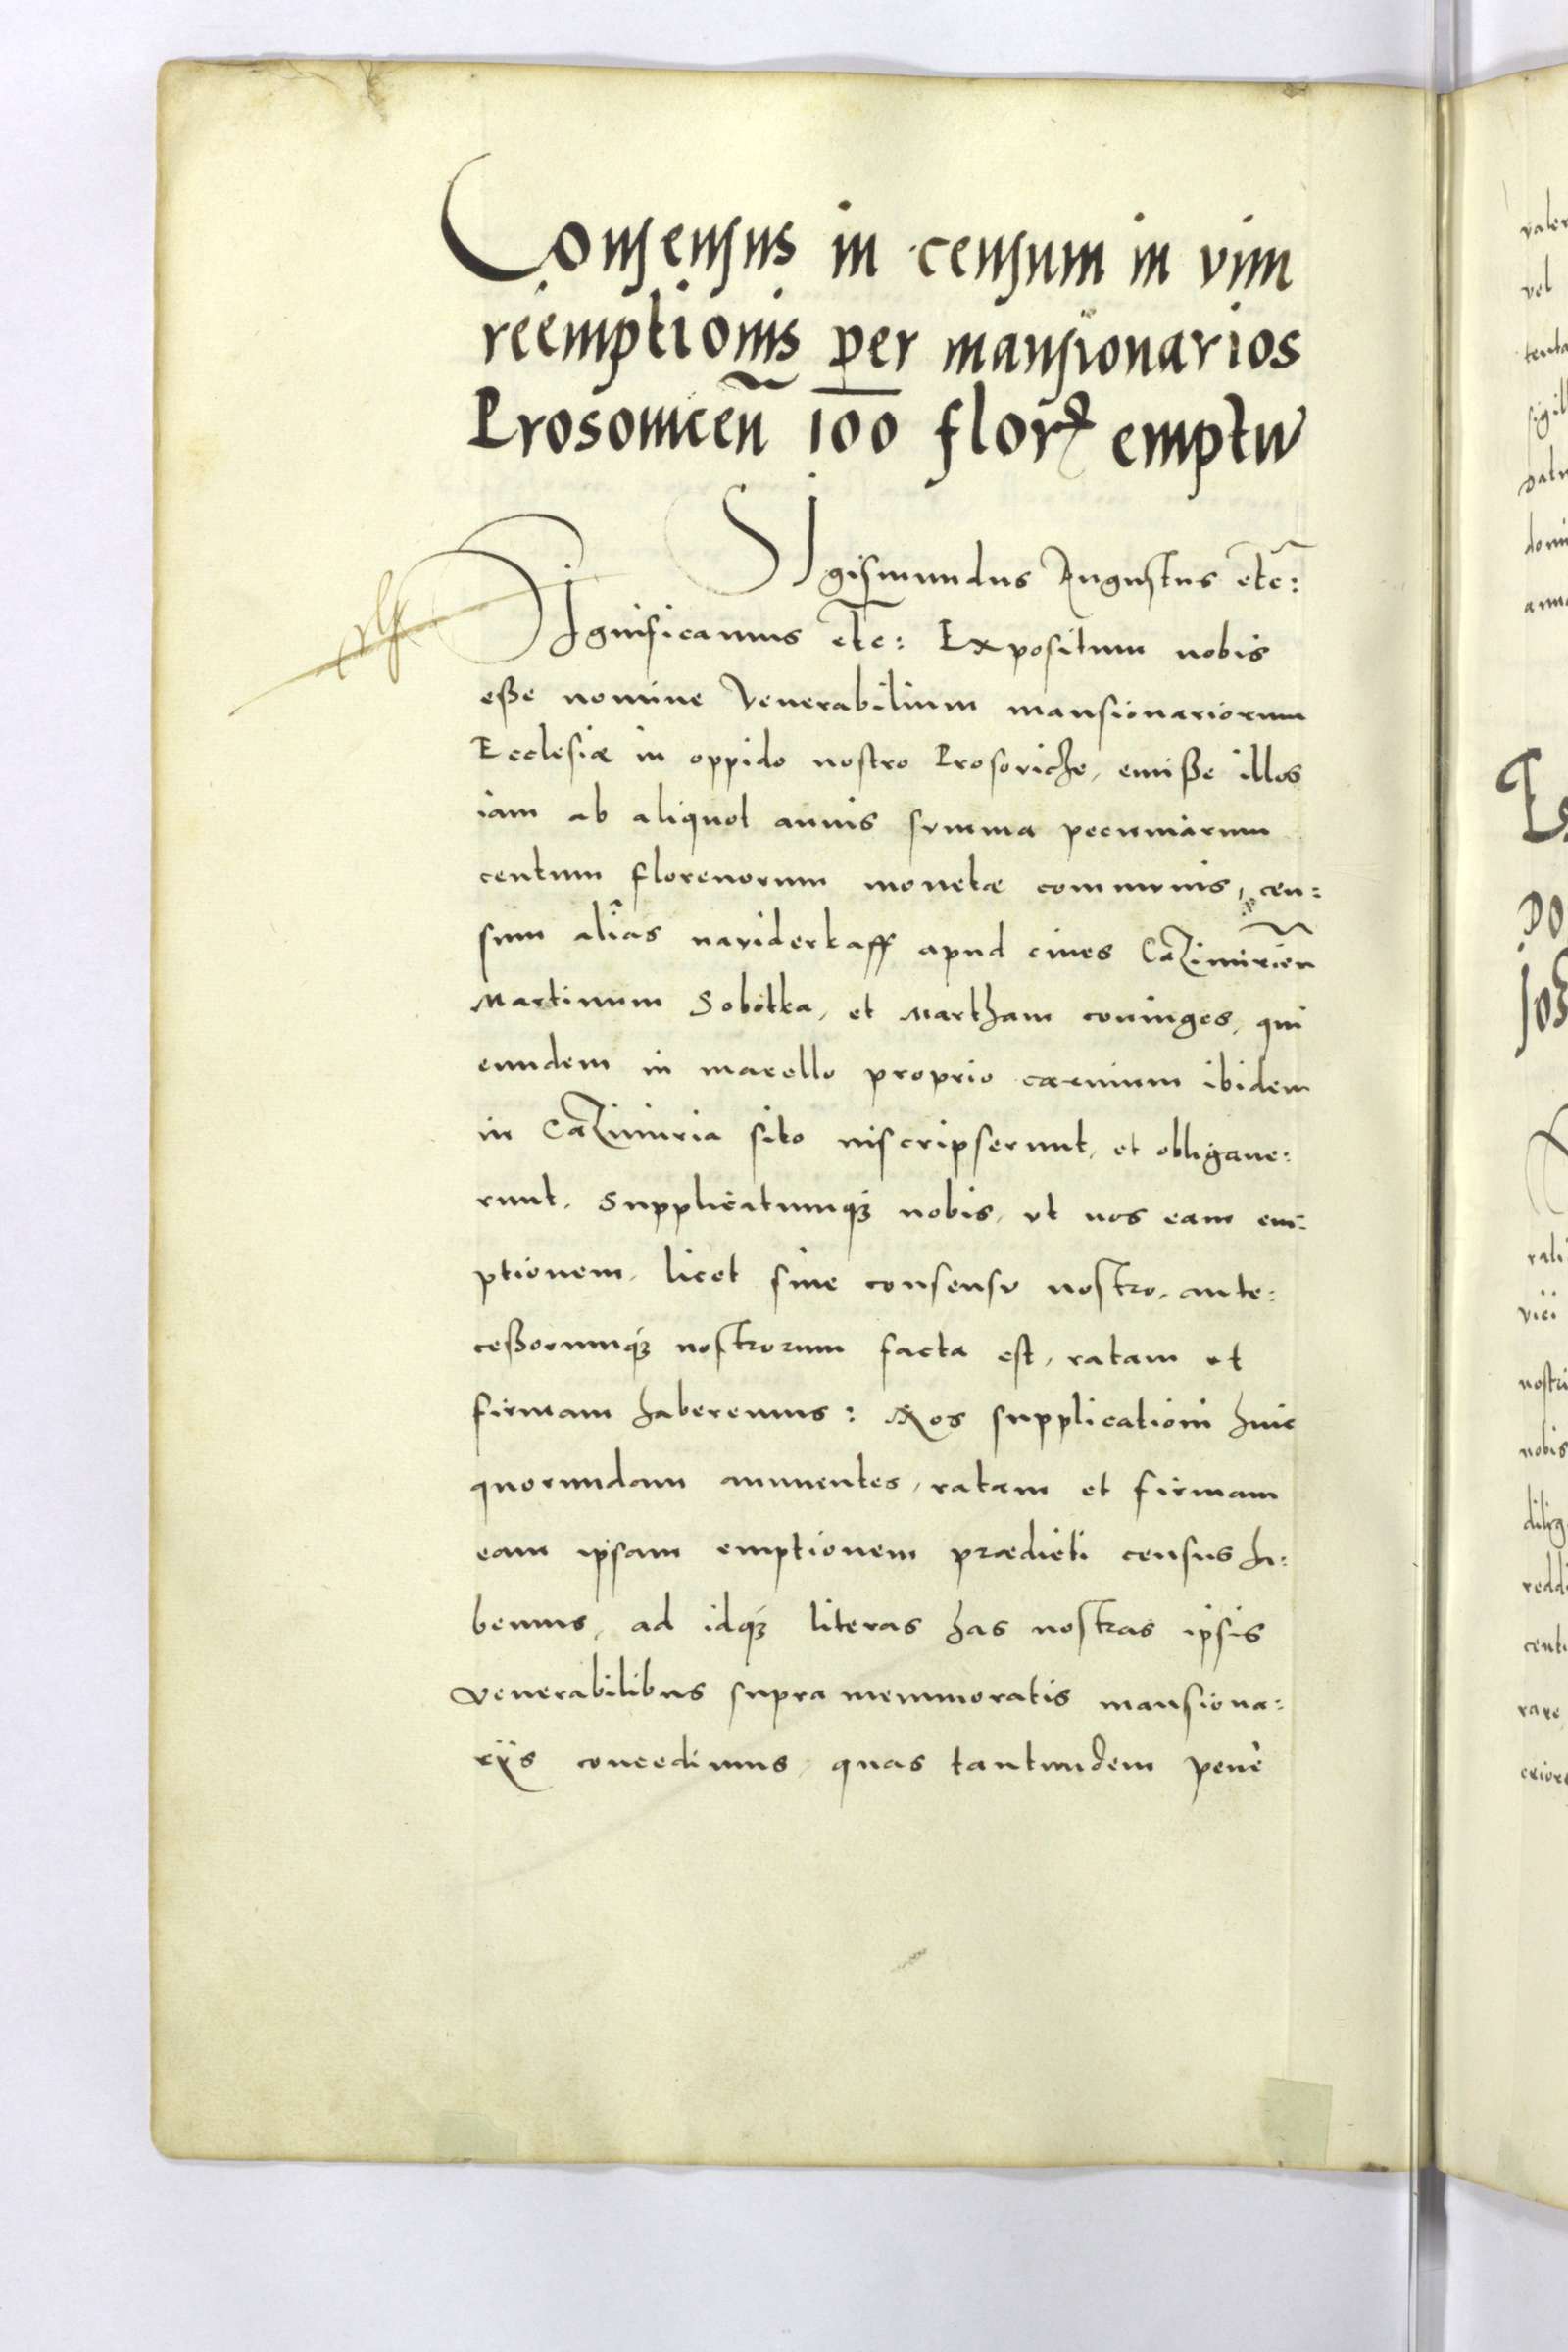 Consensus in censum in vim
reemptionis per mansionarios
Prosovicen̄ 100 flor emptu
SIgismundus Augustus etc:
SIgnificamus etc: Expositum nobis
eße nomine Venerabilium mansionariorum
Ecclesiæ in oppido nostro Prosoviche, emiße illos
iam ab aliquot annis summa pecuniarum
centum florenorum monetæ communis, cen:
sum aliàs naviderkaff apud cives Cazimirien̄
Martinum Sobotka, et Martham coniuges, qui
eundem in macello proprio carnium ibidem
in Cazimiria sito inscripserunt, et obligave:
runt. Supplicatumqȝ nobis, vt nos eam em:
ptionem, licet sine consensv nostro, ante:
ceßorumqȝ nostrorum facta est, ratam et
firmam haberemus: Nos supplicationi huic
quorundam annuentes, ratam et firmam
eam ipsam emptionem prædicti census ha:
bemus, ad idqȝ literas has nostras ipsis
venerabilibus supra memmoratis mansiona:
rijs concedimus, quas tantundem penè
valer
vel
tenta
sigil
datu
domi
anno
po
rali
vici
nostri
nobis
dilig
reddi
centu
rare